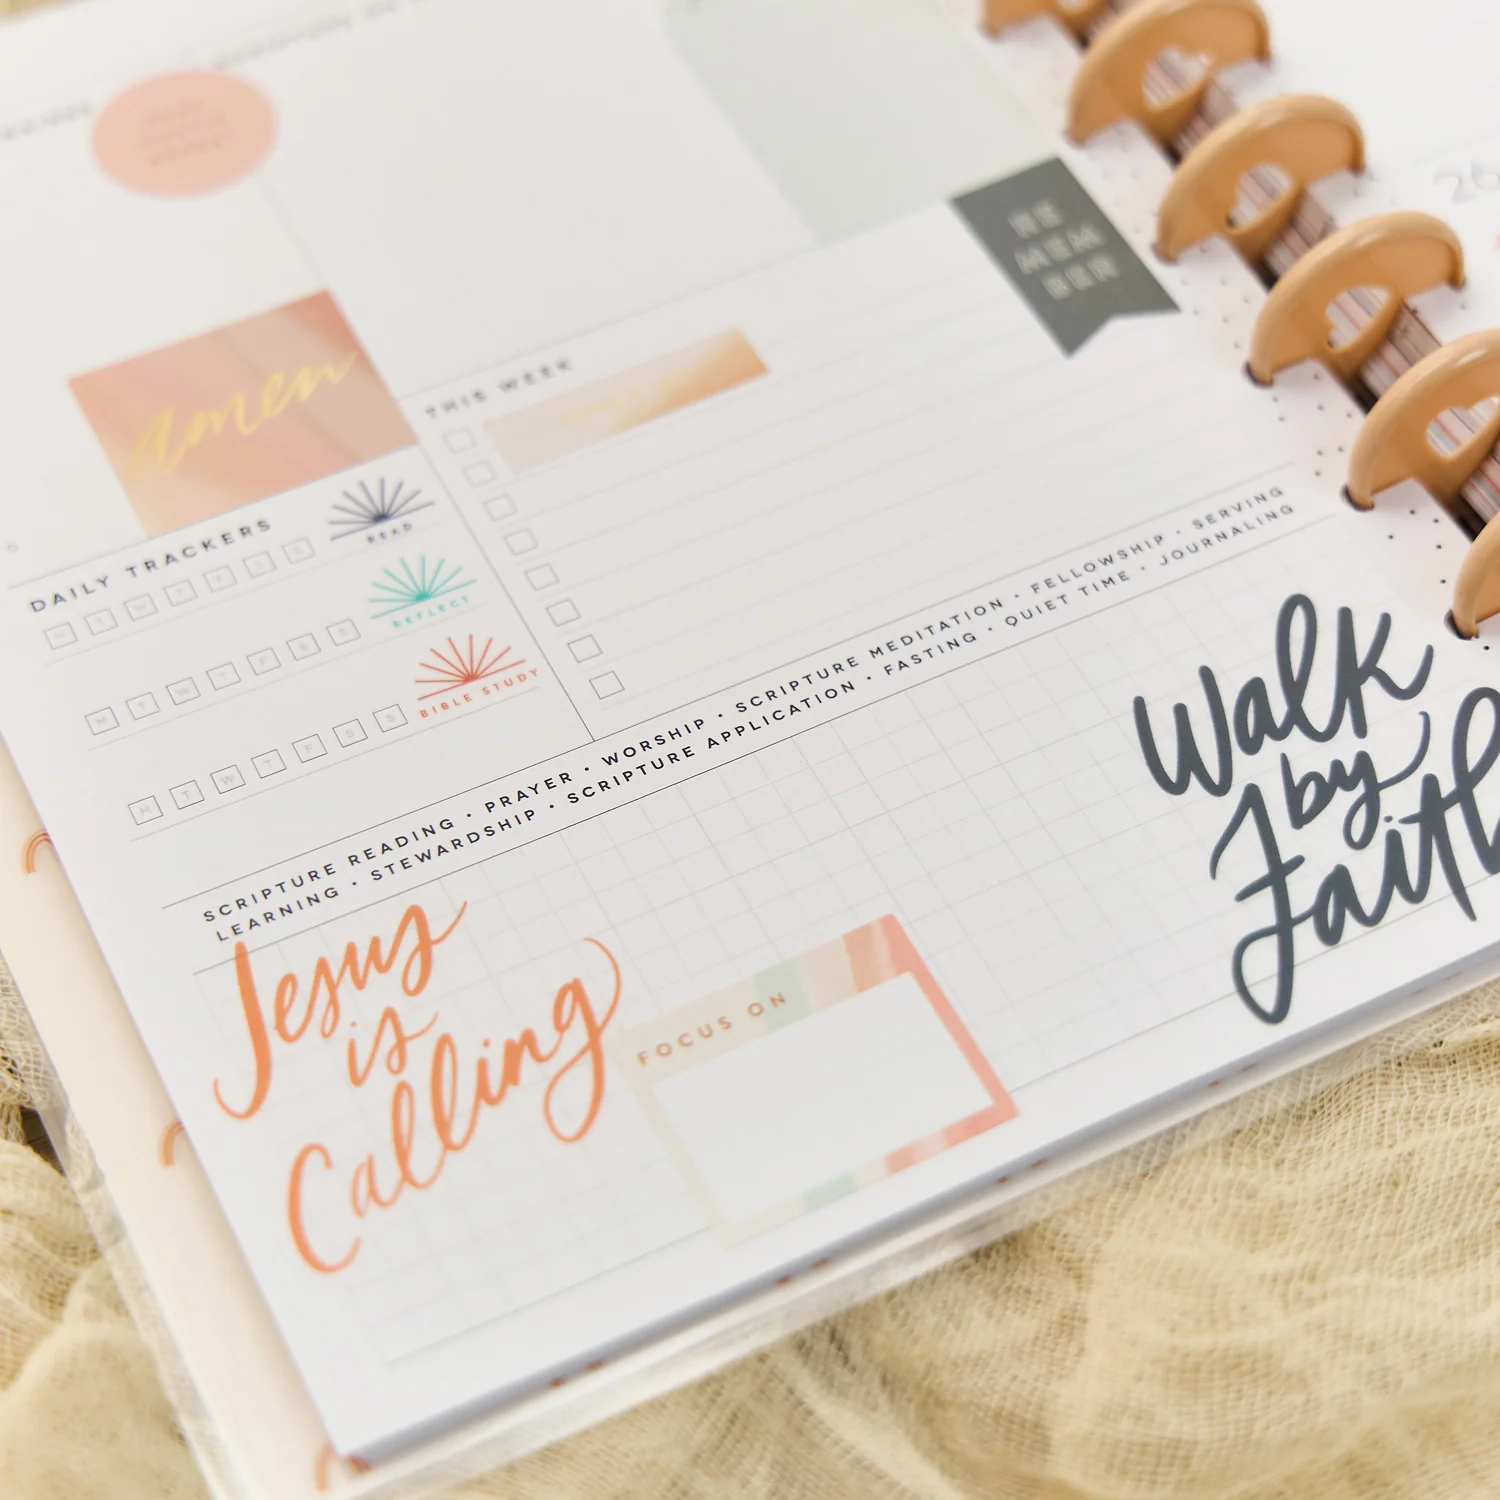 RE
MEM
BER
amen
THIS WEEK
DAILY TRACKERS
READ
M T W T F S S
REFLECT
M T W T F S S
BIBLE STUDY
M T W T F S S
SCRIPTURE READING · PRAYER · WORSHIP · SCRIPTURE MEDITATION · FELLOWSHIP · SERVING
LEARNING · STEWARDSHIP · SCRIPTURE APPLICATION · FASTING · QUIET TIME · JOURNALING
Jesus
is
Calling
FOCUS ON
Walk
by
Faith
26